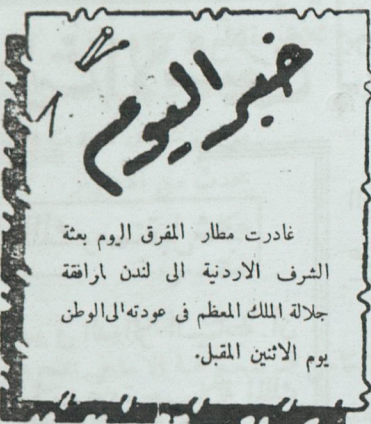 خبر اليوم
غادرت مطار المفرق اليوم بعثة
الشرف الاردنية الى لندن لمرافقة
جلالة الملك المعظم فى عودته الى الوطن
يوم الاثنين المقبل.